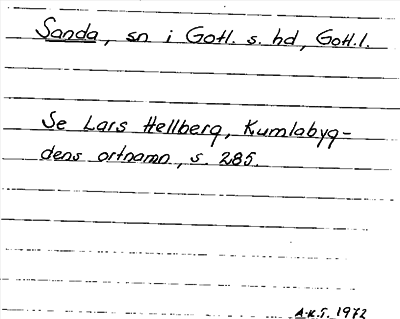 Sanda, sn i Gotl. s. hd, Gotl. l.
Se Lars Hellberg, Kumlabyg-
dens ortnamn, s. 285.
A.K.T. 1972